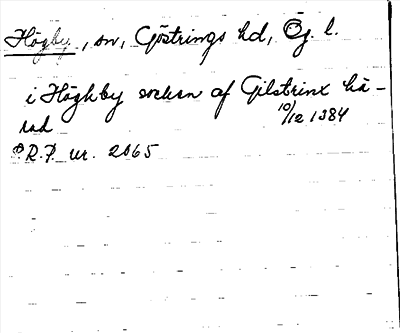 Högby, sn, Göstrings hd, Ög. l.
i Höghby sockan af Gilstrinx hä-
rad
10/12 1384
R.P. nr. 2065